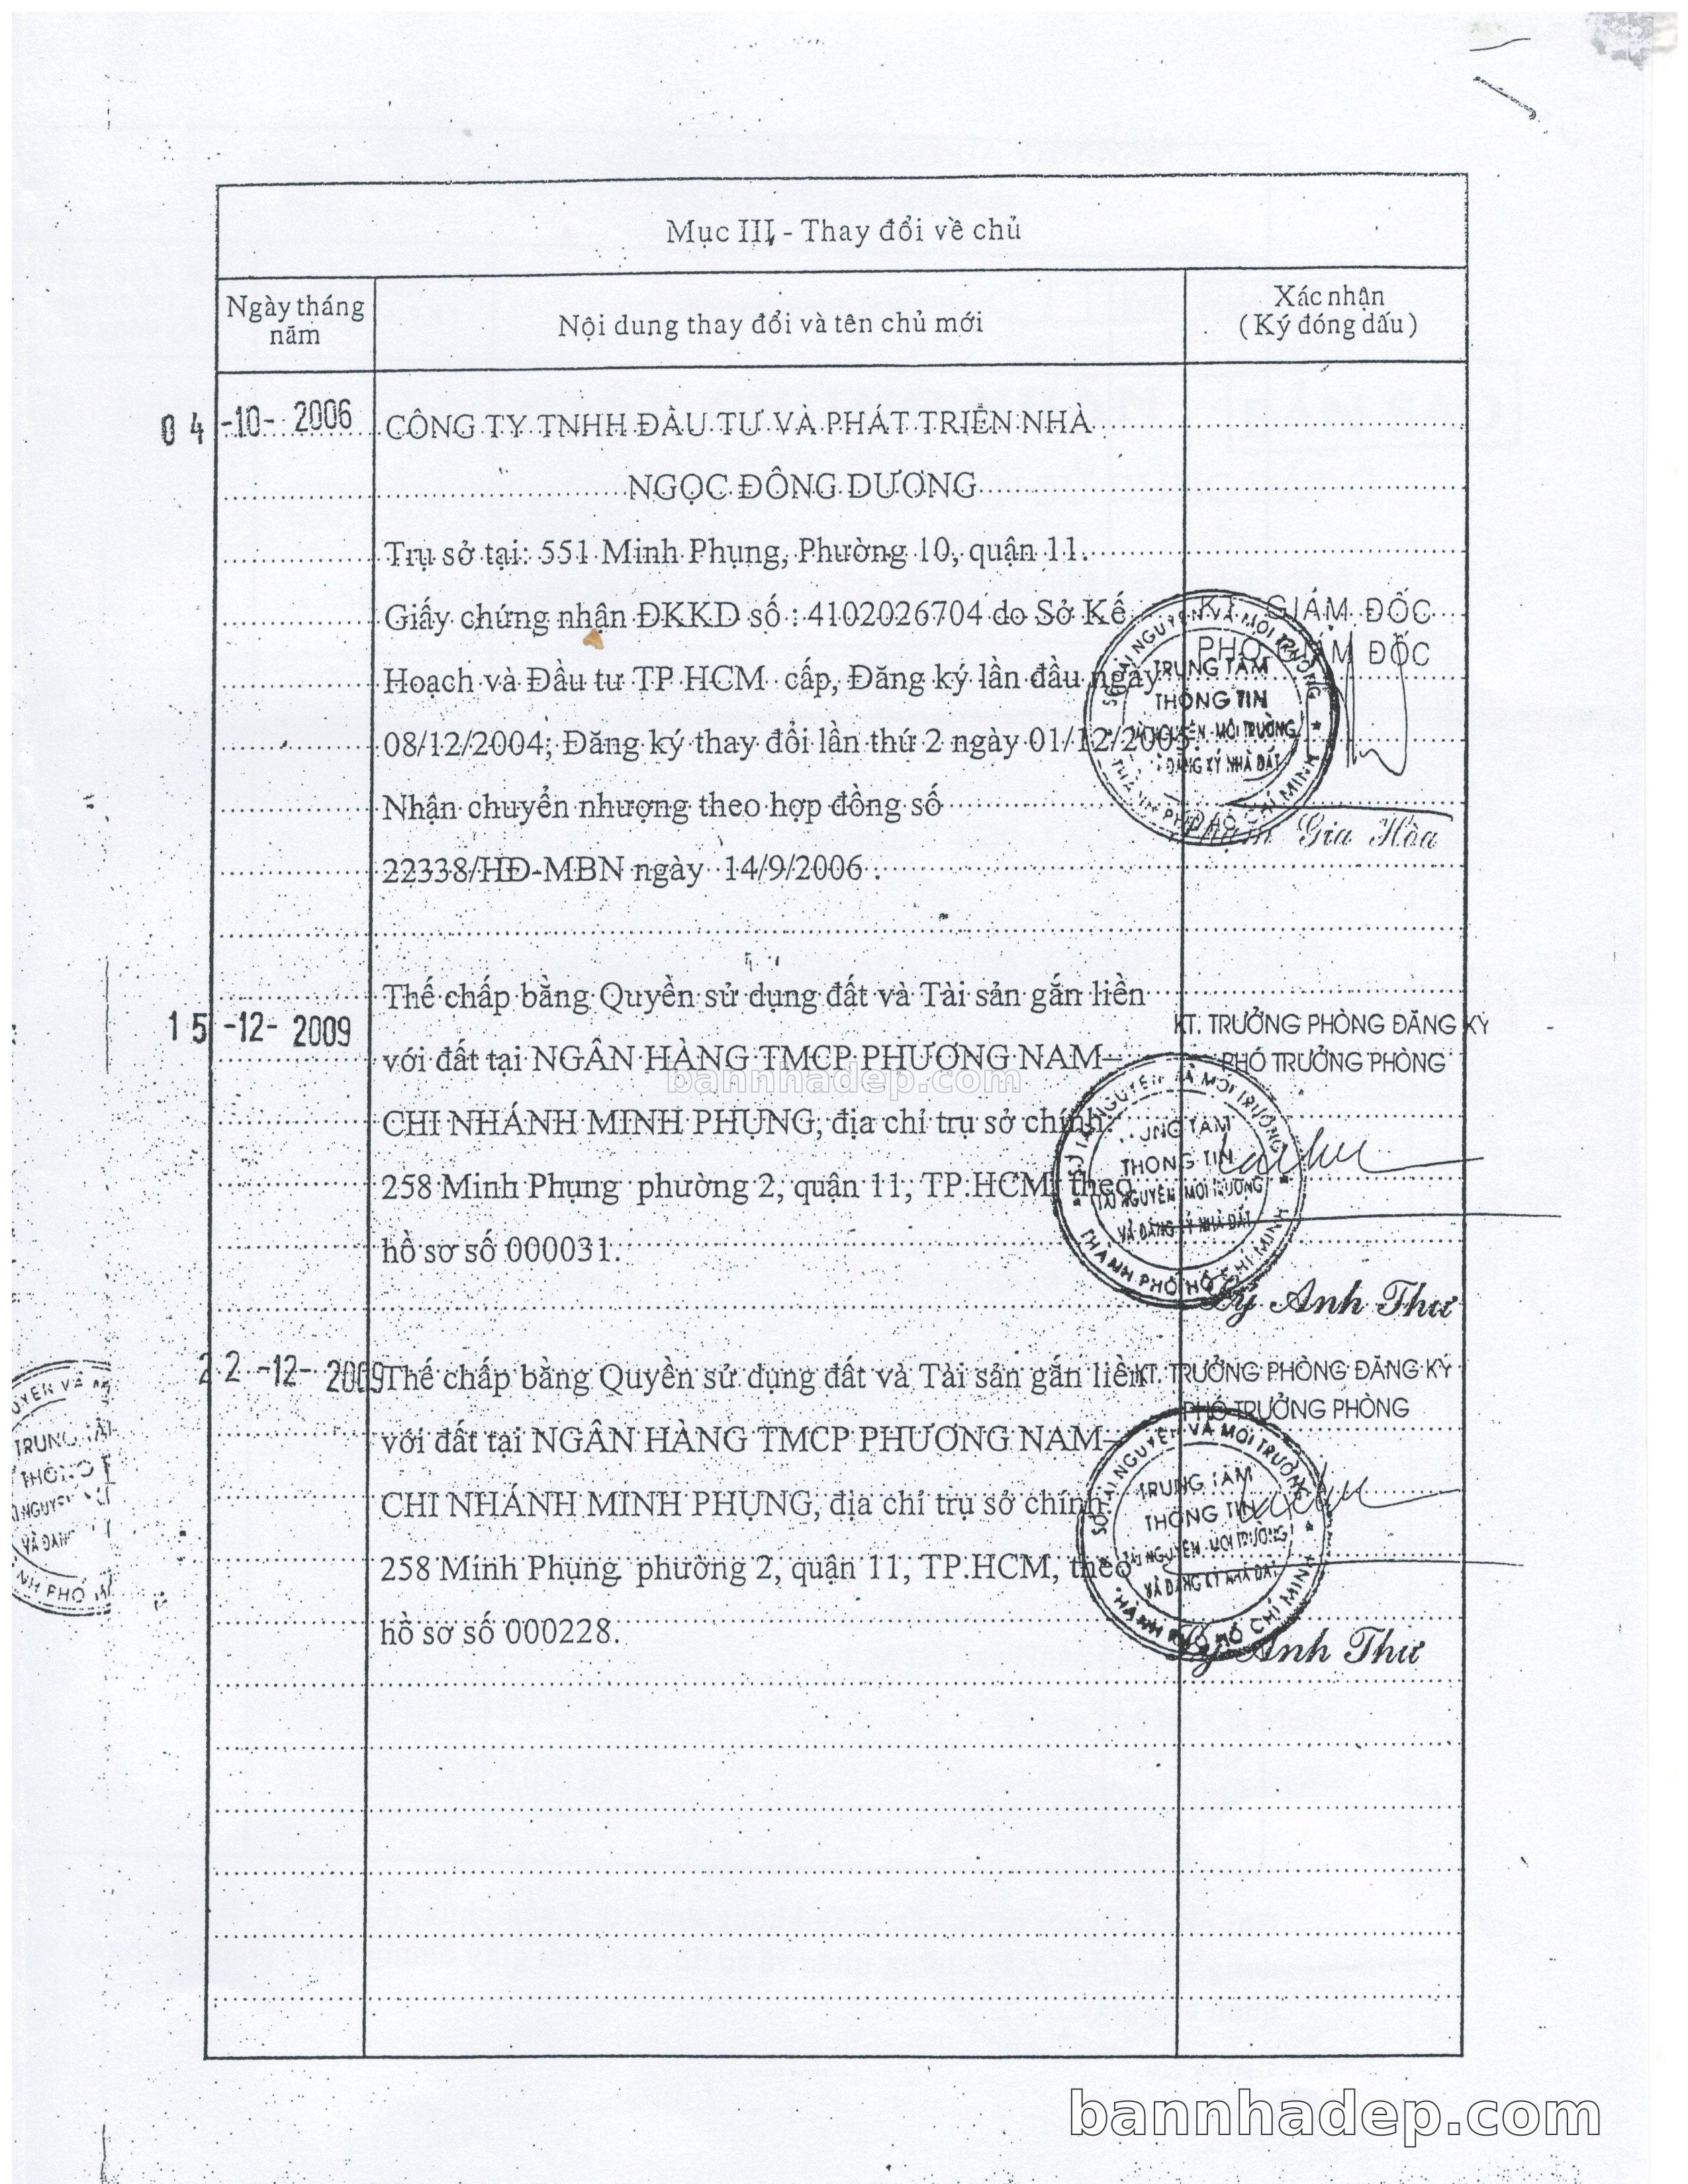 Mục III, - Thay đổi về chủ
Ngày tháng năm
Nội dung thay đổi và tên chủ mới
Xác nhận
( Ký đóng dấu )
04 -10- 2006
CÔNG TY TNHH ĐẦU TƯ VÀ PHÁT TRIỂN NHÀ
NGỌC ĐÔNG DƯƠNG
Trụ sở tại: 551 Minh Phụng, Phường 10, quận 11.
Giấy chứng nhận ĐKKD số : 4102026704 do Sở Kế
Hoạch và Đầu tư TP HCM cấp, Đăng ký lần đầu ngày
08/12/2004; Đăng ký thay đổi lần thứ 2 ngày 01/12/2005.
Nhận chuyển nhượng theo hợp đồng số
22338/HĐ-MBN ngày 14/9/2006 .
KT. GIÁM ĐỐC
PHÓ GIÁM ĐỐC
SỞ TÀI NGUYÊN VÀ MÔI TRƯỜNG
TRUNG TÂM
THÔNG TIN
TÀI NGUYÊN MÔI TRƯỜNG
ĐĂNG KÝ NHÀ ĐẤT
THÀNH PHỐ HỒ CHÍ MINH
Phạm Gia Hòa
15 -12- 2009
Thế chấp bằng Quyền sử dụng đất và Tài sản gắn liền
với đất tại NGÂN HÀNG TMCP PHƯƠNG NAM–
CHI NHÁNH MINH PHỤNG, địa chỉ trụ sở chính:
258 Minh Phụng phường 2, quận 11, TP.HCM, theo
hồ sơ số 000031.
KT. TRƯỞNG PHÒNG ĐĂNG KÝ
PHÓ TRƯỞNG PHÒNG
TÀI NGUYÊN VÀ MÔI TRƯỜNG
TRUNG TÂM
THÔNG TIN
TÀI NGUYÊN MÔI TRƯỜNG
VÀ ĐĂNG KÝ NHÀ ĐẤT
THÀNH PHỐ HỒ CHÍ MINH
Lý Anh Thư
22 -12- 2009
Thế chấp bằng Quyền sử dụng đất và Tài sản gắn liền
với đất tại NGÂN HÀNG TMCP PHƯƠNG NAM–
CHI NHÁNH MINH PHỤNG, địa chỉ trụ sở chính:
258 Minh Phụng phường 2, quận 11, TP.HCM, theo
hồ sơ số 000228.
KT. TRƯỞNG PHÒNG ĐĂNG KÝ
PHÓ TRƯỞNG PHÒNG
SỞ TÀI NGUYÊN VÀ MÔI TRƯỜNG
TRUNG TÂM
THÔNG TIN
TÀI NGUYÊN MÔI TRƯỜNG
VÀ ĐĂNG KÝ NHÀ ĐẤT
THÀNH PHỐ HỒ CHÍ MINH
Lý Anh Thư
bannhadep.com
bannhadep.com